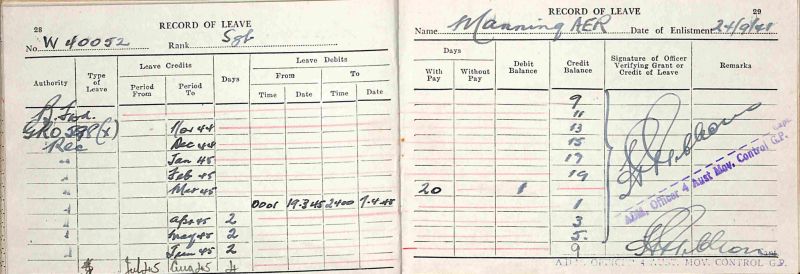 28 RECORD OF LEAVE
No. W 40052 Rank Sgt
Authority Type of Leave Leave Credits Days Leave Debits
Period From Period To From To
Time Date Time Date
B. Fwd.
GRO 598 (x) Nov 44
Rec Dec 44
" Jan 45
" Feb 45
" Mar 45
" 0001 19.3.45 2400 7.4.45
" Apr 45 2
" May 45 2
" June 45 2
Jul 45 Aug 45 4
RECORD OF LEAVE 29
Name Manning AER Date of Enlistment 24/9/41
Days Debit Balance Credit Balance Signature of Officer Verifying Grant or Credit of Leave Remarks
With Pay Without Pay
9
11
13
15
17
19
20 1
1
3
5
9
Capt.
ADM. Officer 4 Aust Mov. Control G.P.
ADM. OFFICER 4 AUST. MOV. CONTROL G.P.